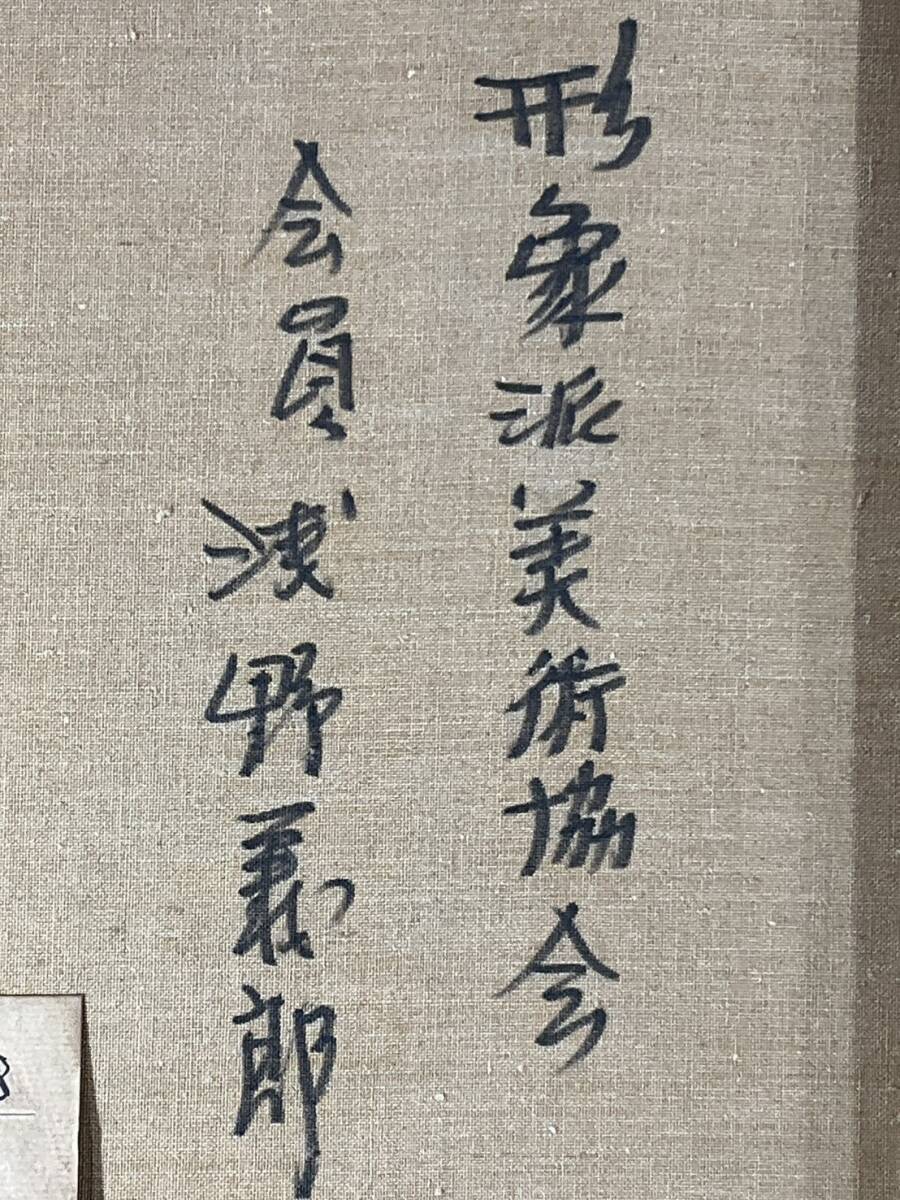 形象派美術協会
会員浅野義郎
8